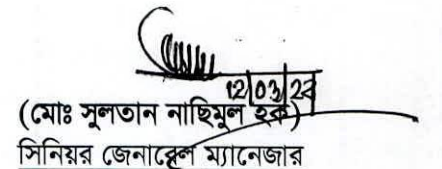 12/03/24
(মোঃ সুলতান নাছিমুল হক)
সিনিয়র জেনারেল ম্যানেজার